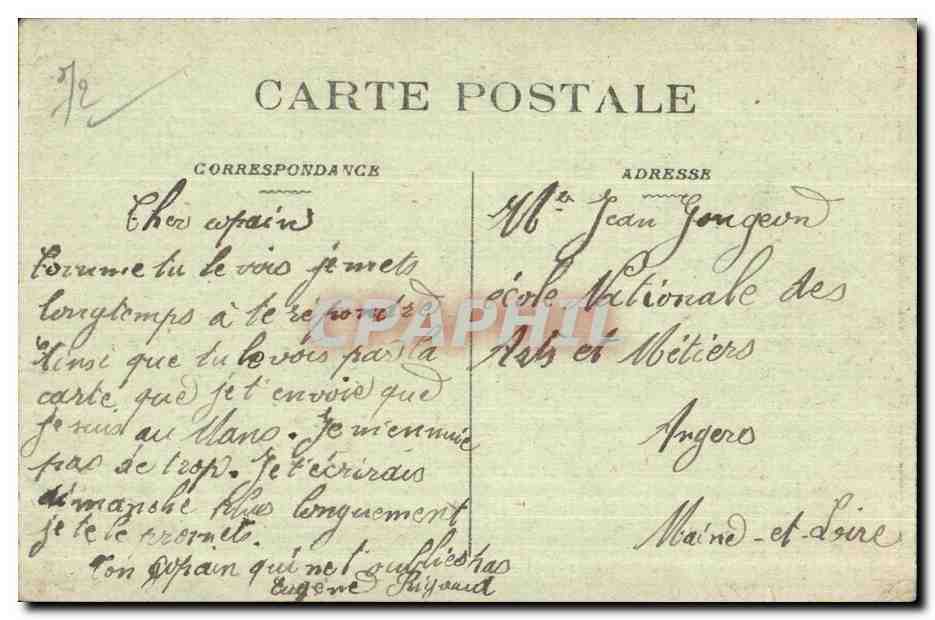 5/2
CARTE POSTALE
CORRESPONDANCE
Cher copain
Comme tu le vois je mets
longtemps à te repondre
Ainsi que tu le vois par la
carte que je t'envoie que
je suis au Mans. Je m'ennuie
pas de trop. Je t'écrirais
dimanche plus longuement
je te le promets.
Ton copain qui ne t'oublies pas
Eugène Rigaud
ADRESSE
Mr Jean Gougeon
école Nationale des
Arts et Métiers
Angers
Maine-et-Loire
CPAPHIL